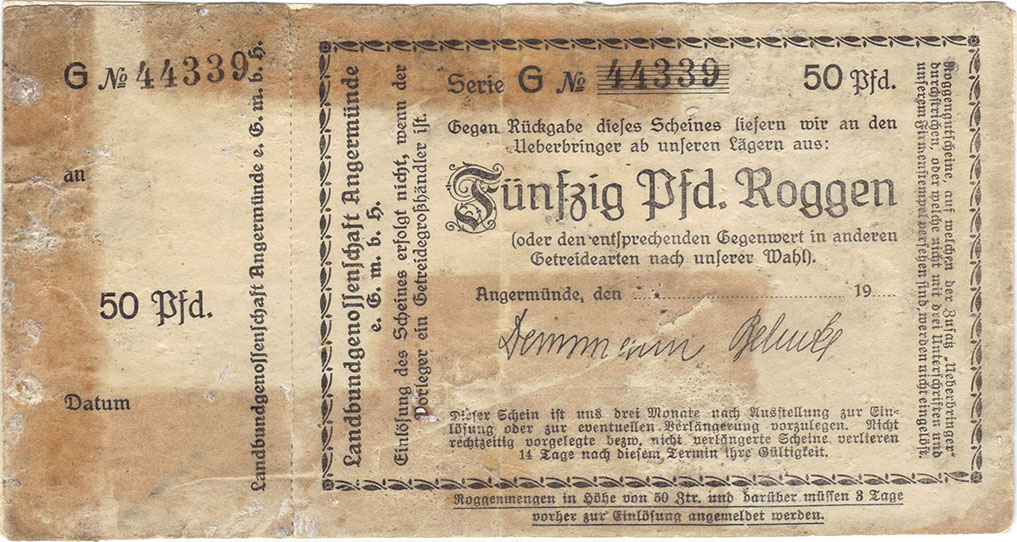 G № 44339
an
50 Pfd.
Datum
Landbundgenossenschaft Angermünde e. G. m. b. H.
Landbundgenossenschaft Angermünde
e. G. m. b. H.
Einlösung des Scheines erfolgt nicht, wenn der
Vorleger ein Getreidegroßhändler ist.
Serie G № 44339 50 Pfd.
Gegen Rückgabe dieses Scheines liefern wir an den
Ueberbringer ab unseren Lägern aus:
Fünfzig Pfd. Roggen
(oder den entsprechenden Gegenwert in anderen
Getreidearten nach unserer Wahl).
Angermünde, den 19
Demmann Behnke
Dieser Schein ist uns drei Monate nach Ausstellung zur Ein-
lösung oder zur eventuellen Verlängerung vorzulegen. Nicht
rechtzeitig vorgelegte bezw. nicht verlängerte Scheine verlieren
14 Tage nach diesem Termin ihre Gültigkeit.
Roggengutscheine, auf welchen der Zusatz „Ueberbringer“
durchstrichen, oder welche nicht mit drei Unterschriften und
unserem Firmenstempel versehen sind, werden nicht eingelöst.
Roggenmengen in Höhe von 50 Ztr. und darüber müssen 3 Tage
vorher zur Einlösung angemeldet werden.